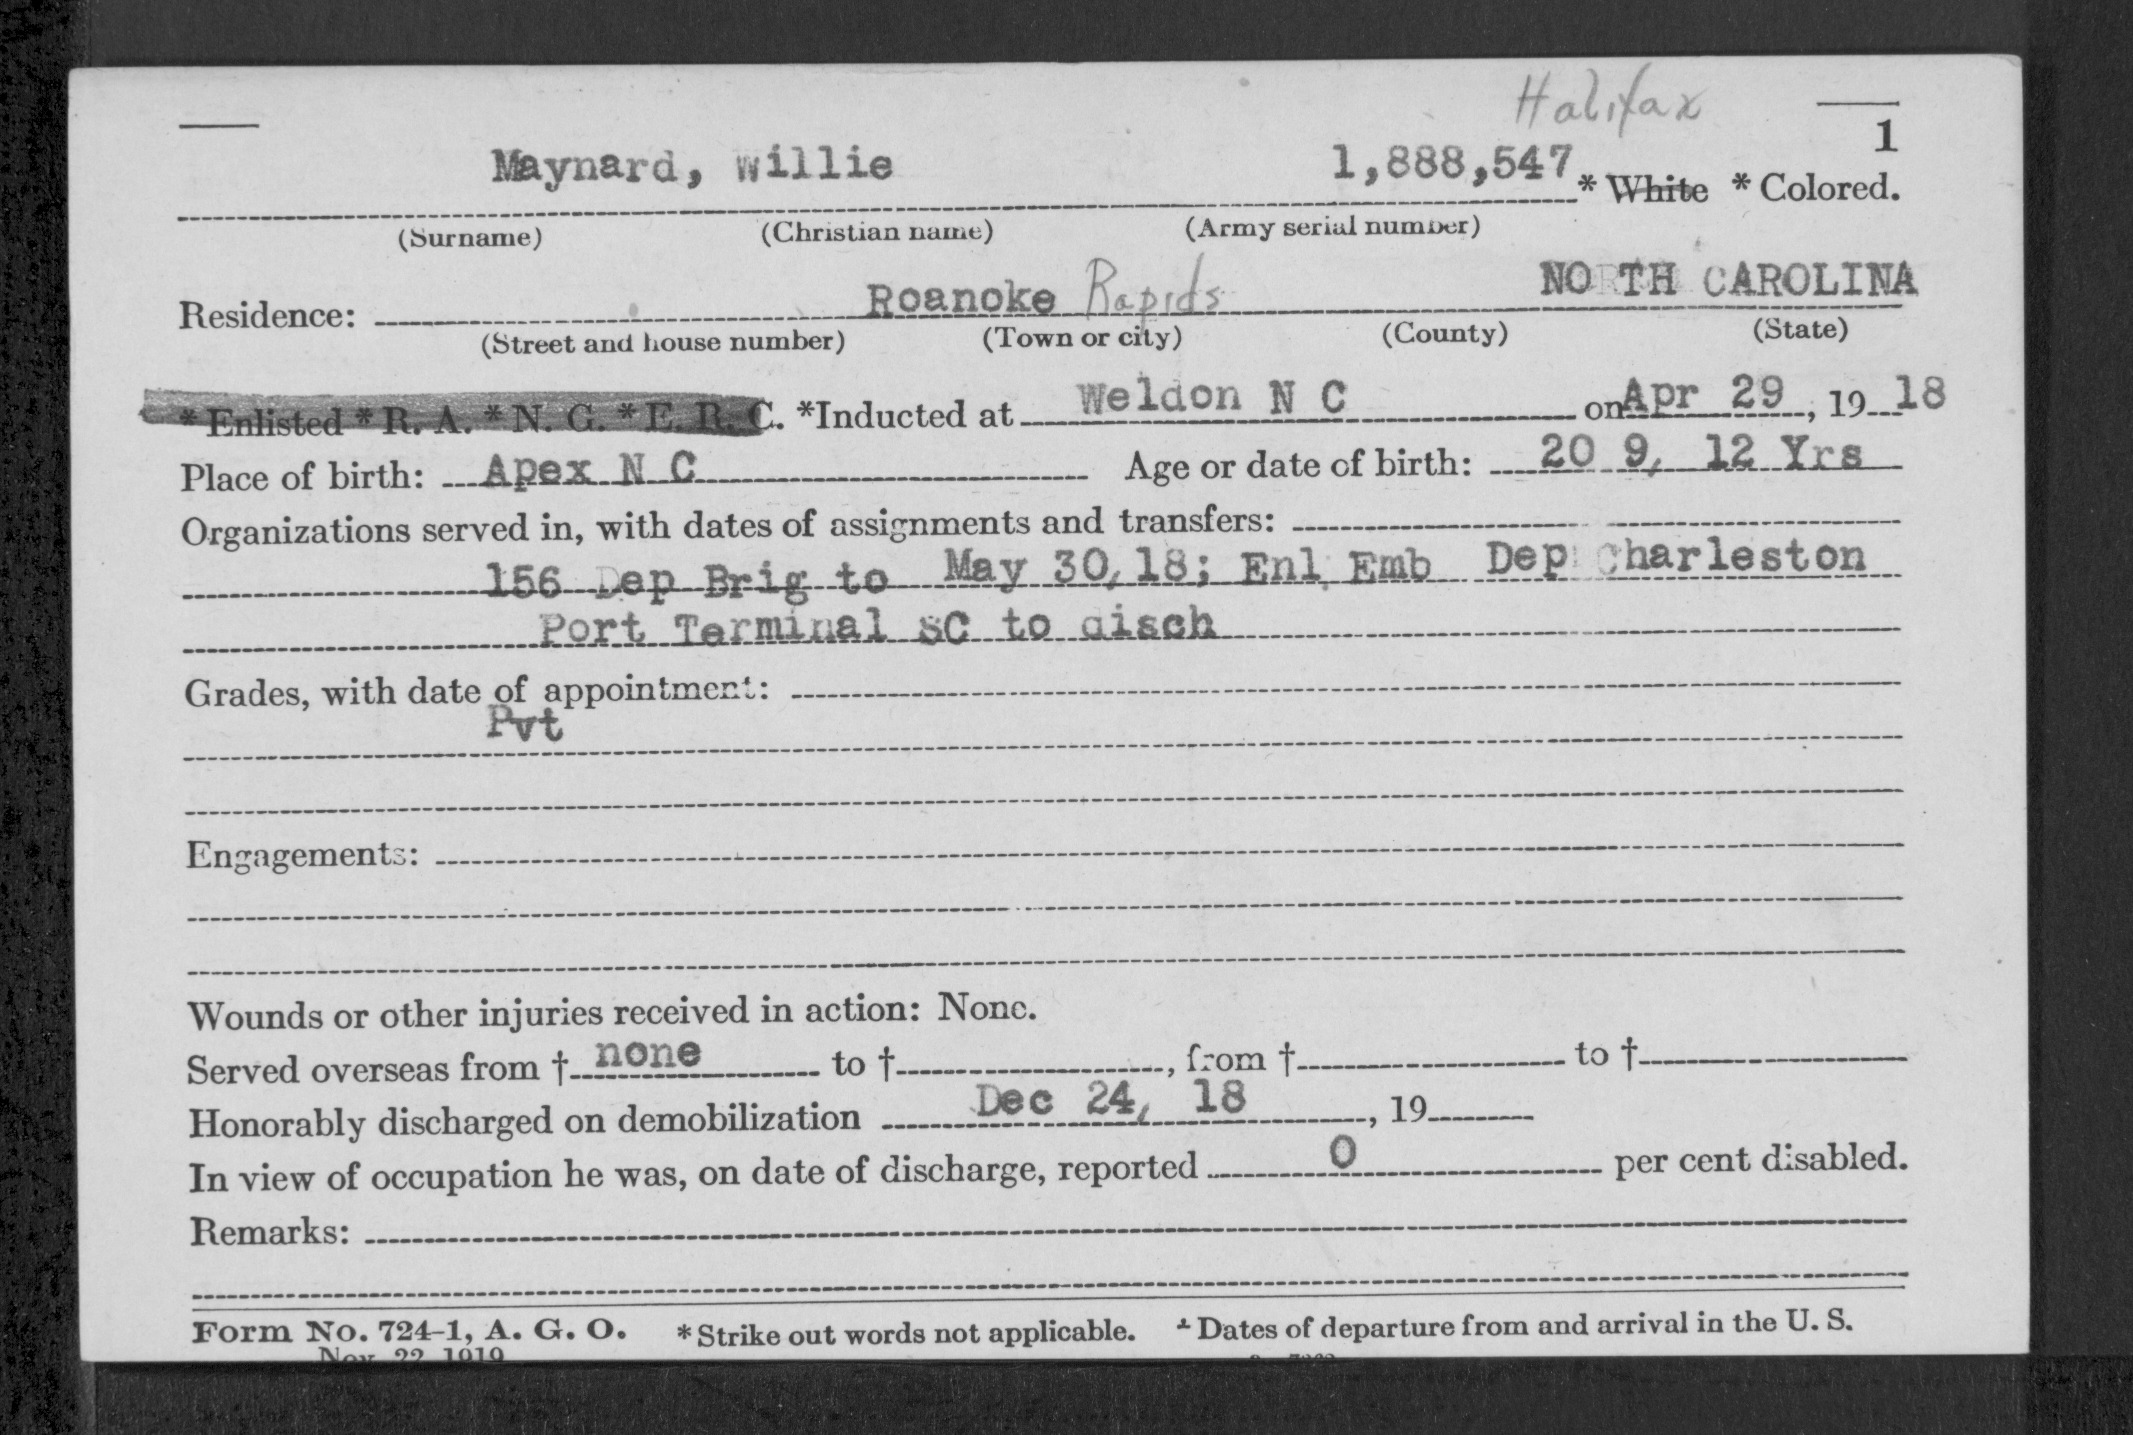 Halifax
1
Maynard, Willie 1,888,547 * White * Colored.
(Surname) (Christian name) (Army serial number)
Residence: Roanoke Rapids NORTH CAROLINA
(Street and house number) (Town or city) (County) (State)
* Enlisted * R. A. * N. G. * E. R. C. *Inducted at Weldon N C on Apr 29, 19 18
Place of birth: Apex N C Age or date of birth: 20 9/12 Yrs
Organizations served in, with dates of assignments and transfers:
156 Dep Brig to May 30/18; Enl Emb Dep Charleston
Port Terminal SC to disch
Grades, with date of appointment:
Pvt
Engagements:
Wounds or other injuries received in action: None.
Served overseas from † none to † , from † to †
Honorably discharged on demobilization Dec 24/18 , 19
In view of occupation he was, on date of discharge, reported 0 per cent disabled.
Remarks:
Form No. 724-1, A. G. O. * Strike out words not applicable. † Dates of departure from and arrival in the U. S.
Nov. 22, 1919